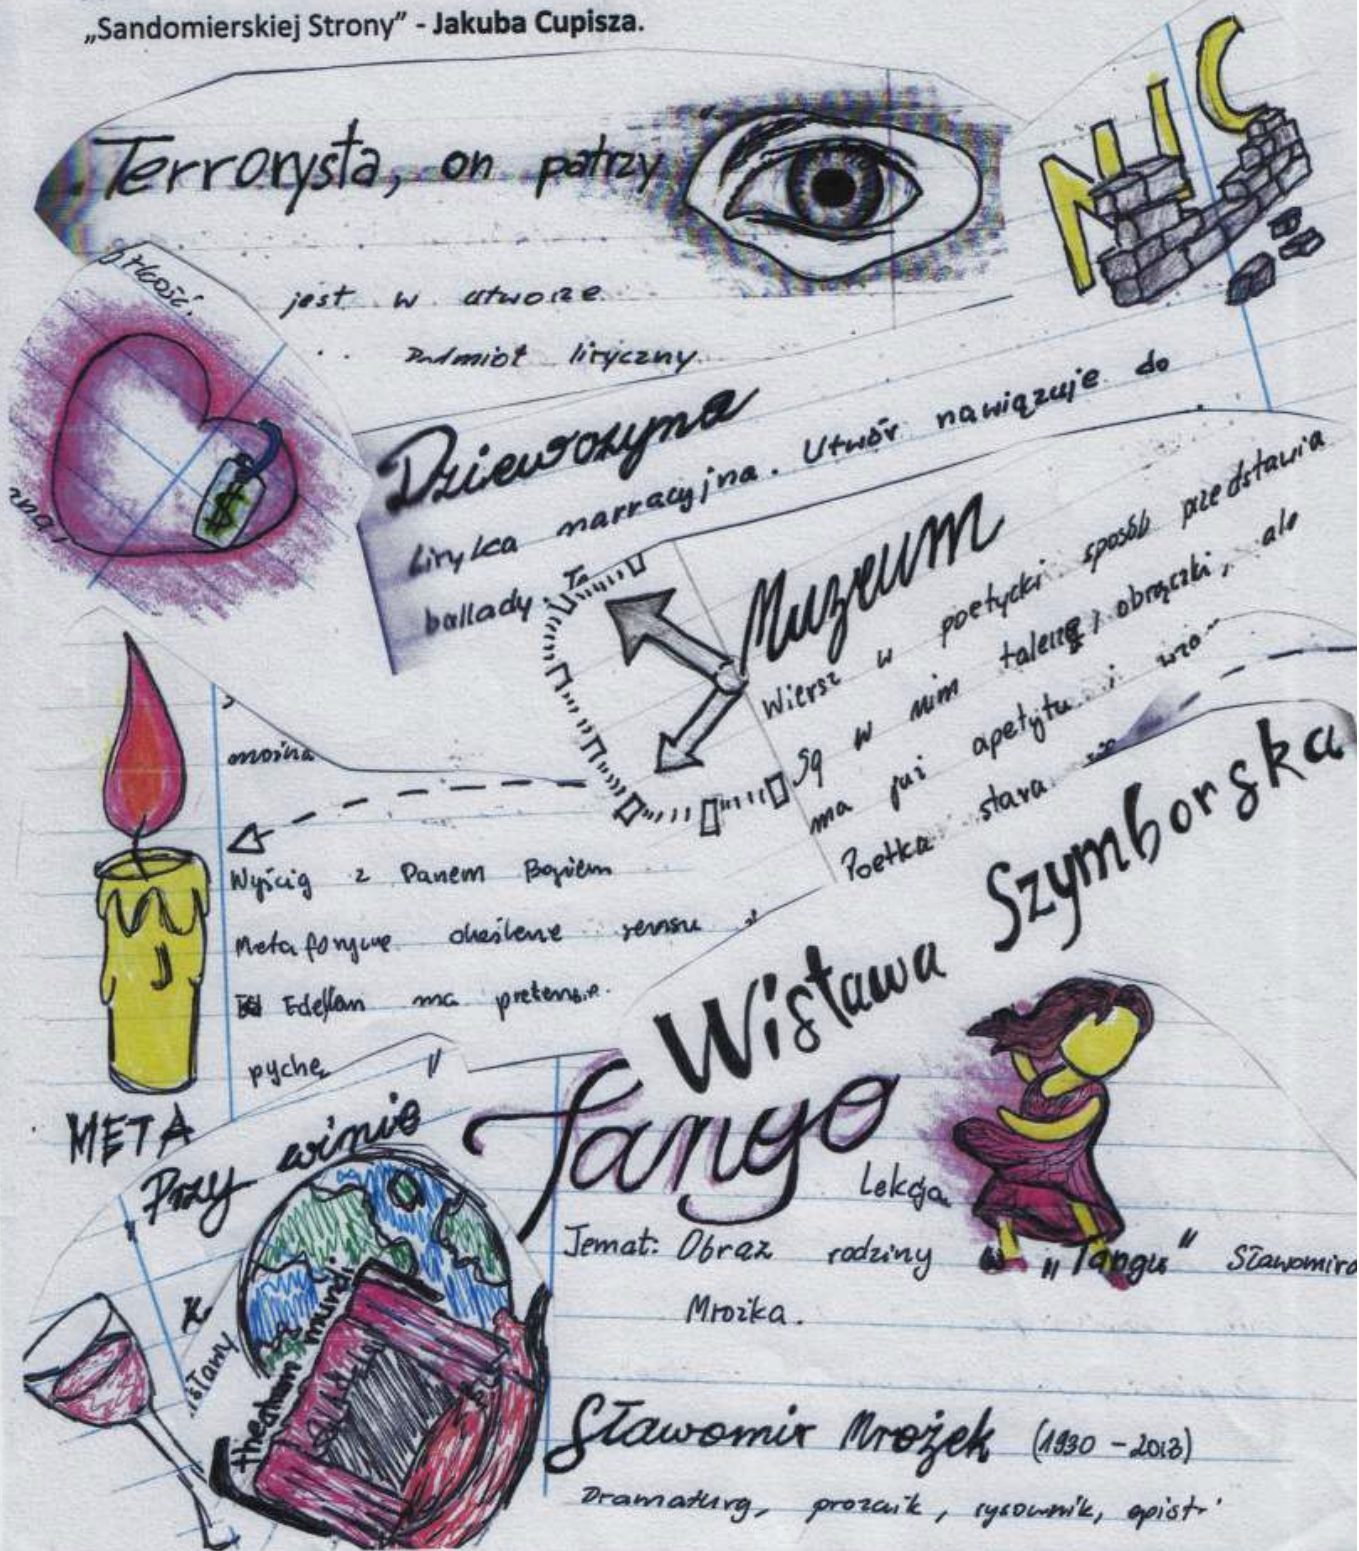 „Sandomierskiej Strony” - Jakuba Cupisza.
Terrorysta, on patrzy
NIC
jest w utworze
Podmiot liryczny
Dziewczyna
liryka narracyjna. Utwór nawiązuje do
ballady. Ta
$
Muzeum
Wiersz w poetycki sposób przedstawia
Są w nim talerze, obrączki, ale
ma już apetytu i wza
Poetka stara
można
Wyścig z Panem Bogiem
Metaforyczne określenie sensu
Edelman ma pretensje
pychę
META
Wisława Szymborska
Przy winie
theatrum mundi
Tango
Lekcja
Temat: Obraz rodziny w „Tangu” Sławomira
Mrożka.
Sławomir Mrożek (1930-2013)
Dramaturg, prozaik, rysownik, epist